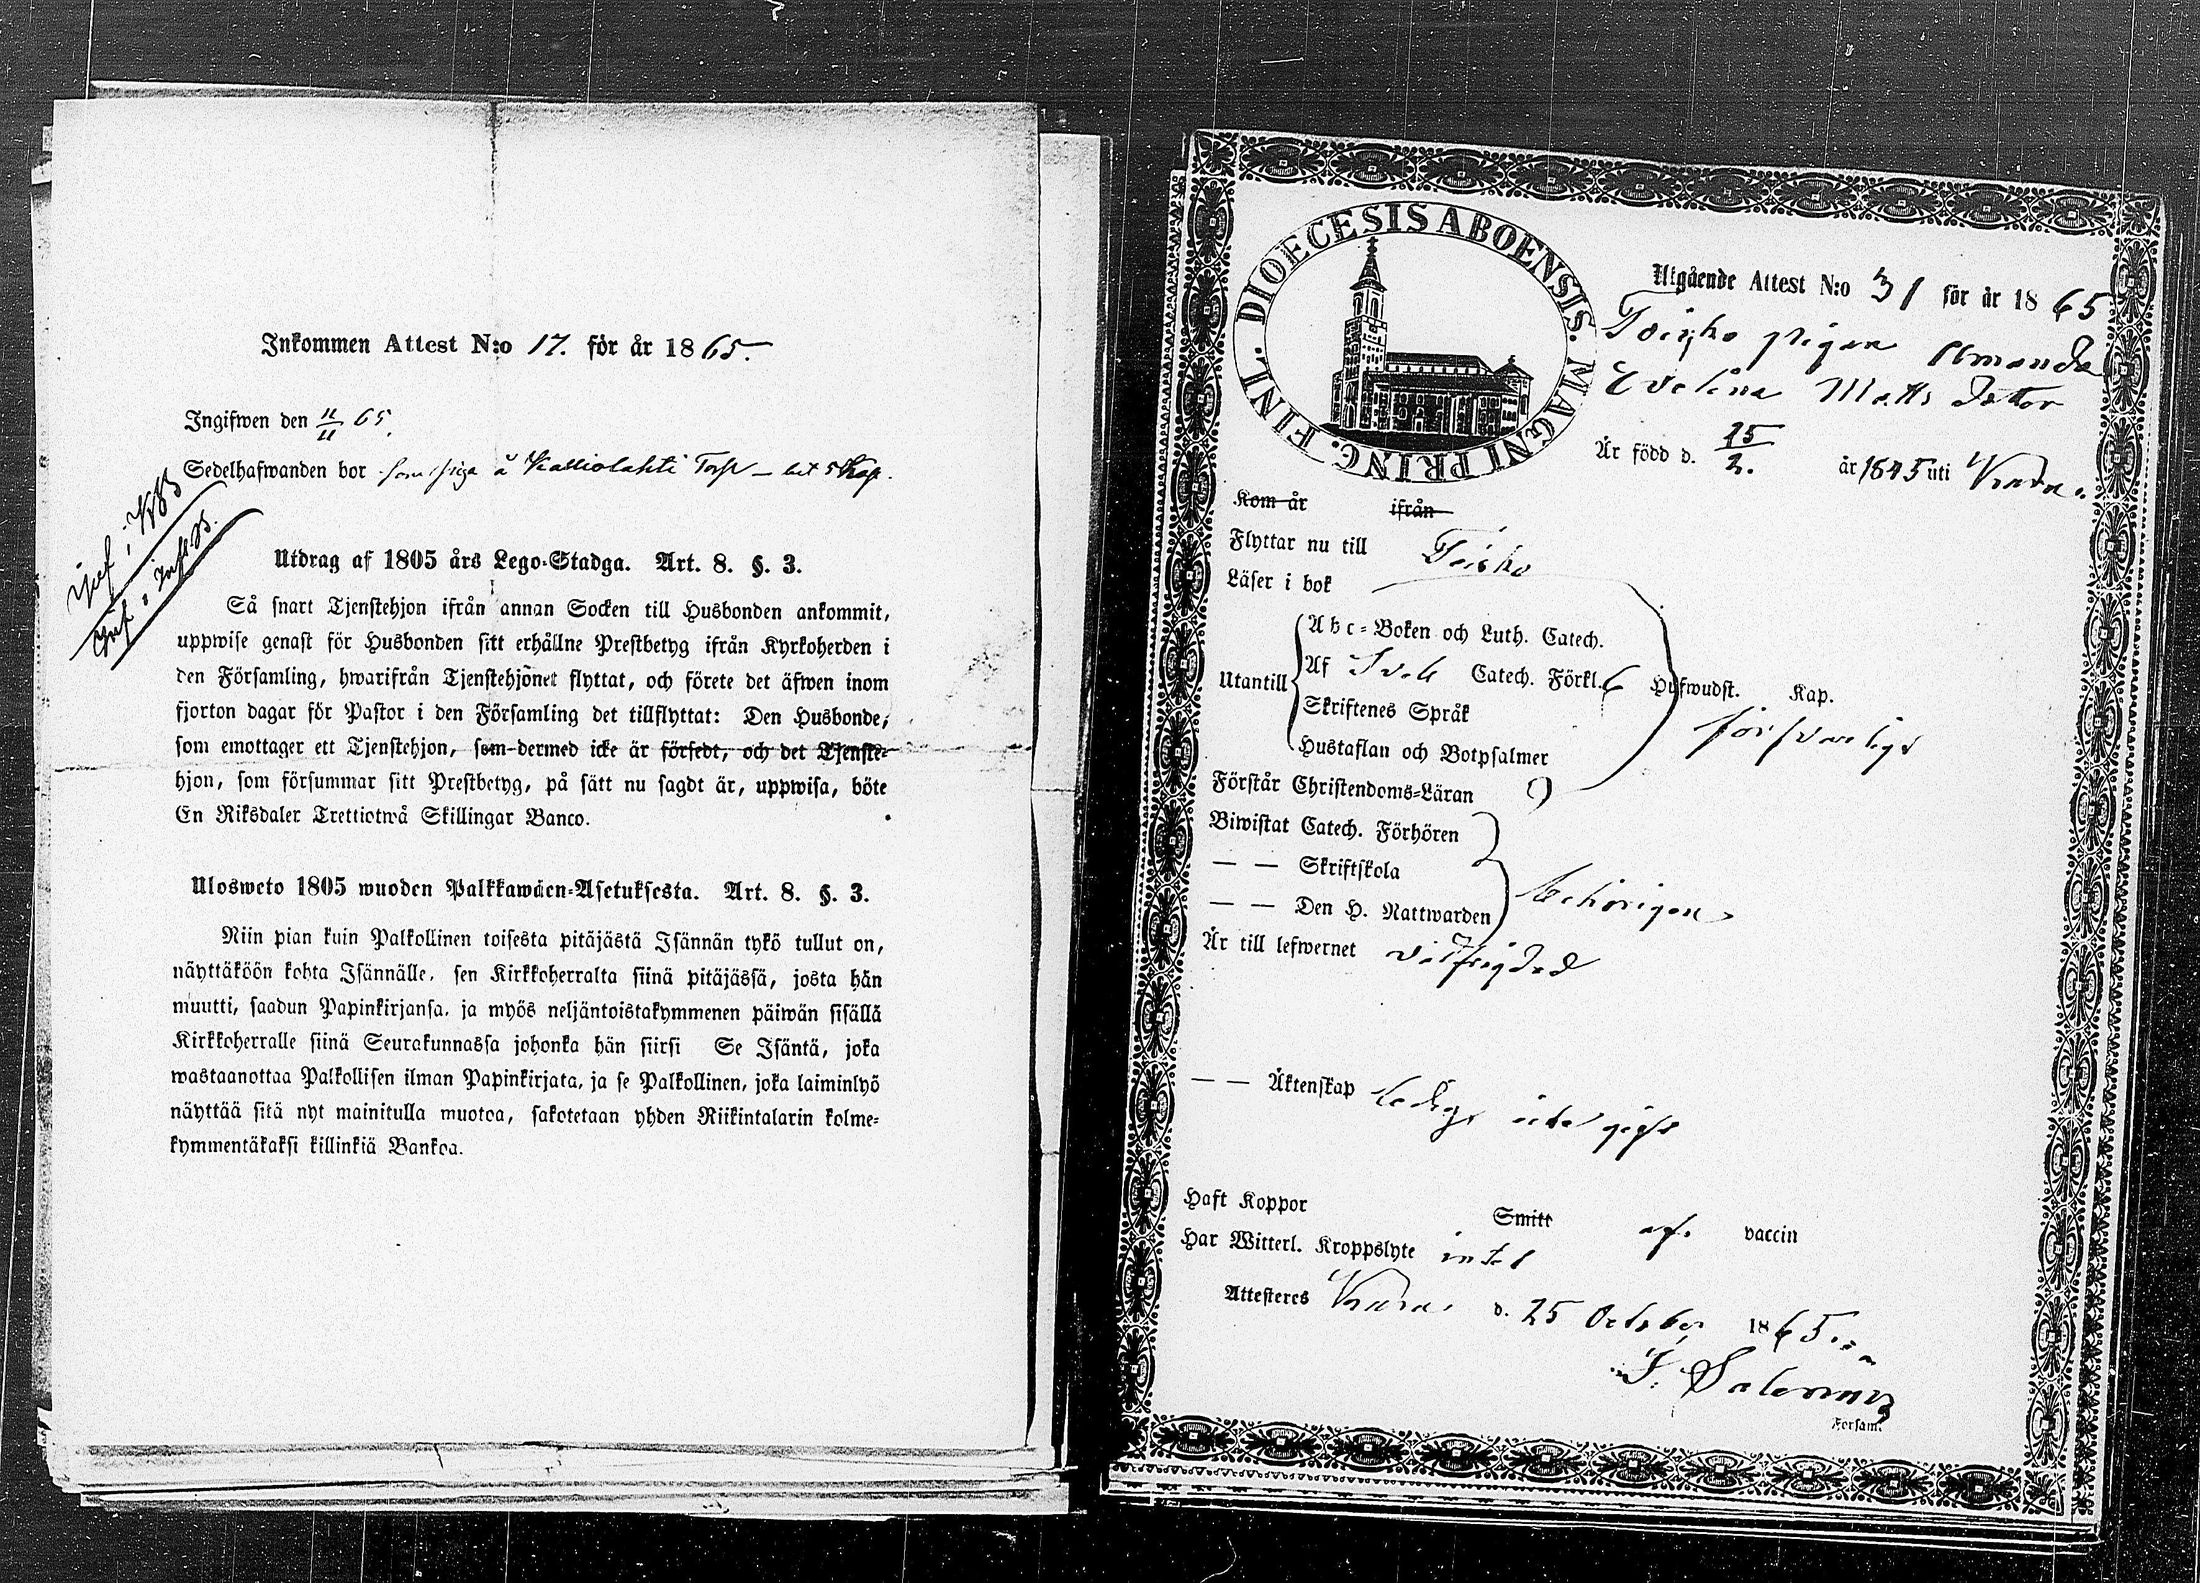 Inkommen Attest N:o 17. för år 1865.
Ingifwen den 11/11 65.
Sedelhafwanden bor som piga å Kalliolahti Torp
Utdrag af 1805 års Lego-Stadga. Art. 8. §. 3.
Så snart Tjenstehjon ifrån annan Socken till Husbonden ankommit,
uppwise genast för Husbonden sitt erhållne Prestbetyg ifrån Kyrkoherden i
den Församling, hwarifrån Tjenstehjonet flyttat, och förete det äfwen inom
fjorton dagar för Pastor i den Församling det tillflyttat: Den Husbonde,
som emottager ett Tjenstehjon, som dermed icke är försedt, och det Tjenste-
hjon, som försummar sitt Prestbetyg, på sätt nu sagdt är, uppwisa, böte
En Riksdaler Trettiotwå Skillingar Banco.
Ulosweto 1805 wuoden Palkkawäen-Asetuksesta. Art. 8. §. 3.
Niin pian kuin Palkollinen toisesta pitäjästä Isännän tykö tullut on,
näyttäköön kohta Isännälle, sen Kirkkoherralta siinä pitäjässä, josta hän
muutti, saadun Papinkirjansa, ja myös neljäntoistakymmenen päiwän sisällä
Kirkkoherralle siinä Seurakunnassa johonka hän siirsi Se Isäntä, joka
wastaanottaa Palkollisen ilman Papinkirjata, ja se Palkollinen, joka laiminlyö
näyttää sitä nyt mainitulla muotoa, sakotetaan yhden Riikintalarin kolme-
kymmentäkaksi killinkiä Bankoa.
DIOECESIS ABOENSIS. MAGNI PRINC. FINL.
Utgående Attest N:o 31 för år 1865
pigan Amanda
Evelina Matts dotter
Är född d. 25/2. år 1845 uti
Kom år ifrån
Flyttar nu till Teisko
Läser i bok
Utantill
Abc-Boken och Luth. Catech.
Af Sveb Catech. Förkl. 6 Hufwudst. Kap.
Skriftenes Språk
försvarligt
Hustaflan och Botpsalmer
Förstår Christendoms-Läran
Biwistat Catech. Förhören
— — Skriftskola
behörigen
— — Den H. Nattwarden
Är till lefwernet välfrägdad
— — Äktenskap ledig
Haft Koppor Smitt af vaccin
Har Witterl. Kroppslyte intet
Attesteres d. 25 October 1865
Försam.